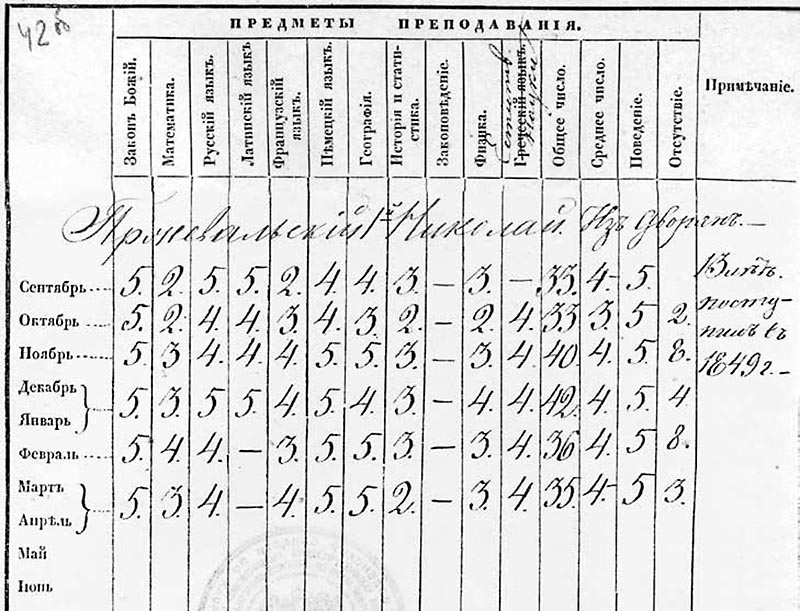 42б
ПРЕДМЕТЫ ПРЕПОДАВАНІЯ.
Законъ Божій. Математика. Русскій языкъ. Латинскій языкъ Французскій языкъ. Нѣмецкій языкъ. Географія. Исторія и статистика. Законовѣденіе. Физика. Греческій языкъ. Естеств. Науки Общее число. Среднее число. Поведеніе. Отсутствіе. Примѣчаніе.
Пржевальскій 1й Николай. Изъ Дворянъ.—
Сентябрь 5. 2. 5. 5. 2. 4. 4. 3. — 3. — 33. 4. 5. 13 лѣтъ.
Октябрь 5. 2. 4. 4. 3. 4. 3. 2. — 2. 4. 33 3. 5 2. посту-
Ноябрь 5. 3 4. 4. 4. 5. 5. 3. — 3. 4. 40. 4. 5. 8. пилъ съ
Декабрь 1849 г.—
Январь 5. 3. 5 5. 4. 5. 4. 3 — 4. 4. 42. 4. 5. 4
Февраль 5. 4 4. — 3. 5. 5. 3. — 3. 4. 36 4. 5 8.
Мартъ
Апрѣль 5. 3. 4. — 4. 5. 5. 2. — 3. 4. 35. 4. 5 3.
Май
Іюнь